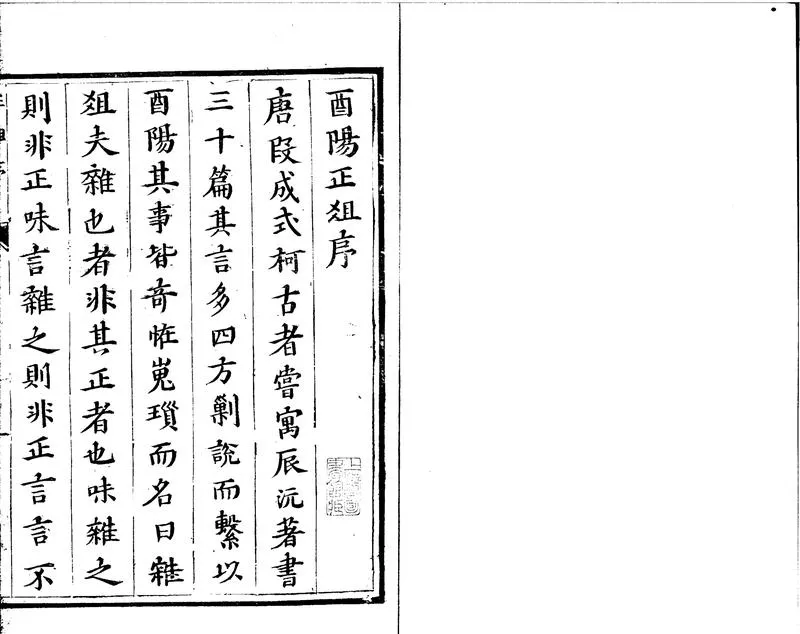 酉陽正俎序
唐段成式柯古者嘗寓辰沅著書
三十篇其言多四方剿說而繫以
酉陽其事皆竒恠嵬瑣而名曰雜
俎夫雜也者非其正者也味雜之
則非正味言雜之則非正言言不